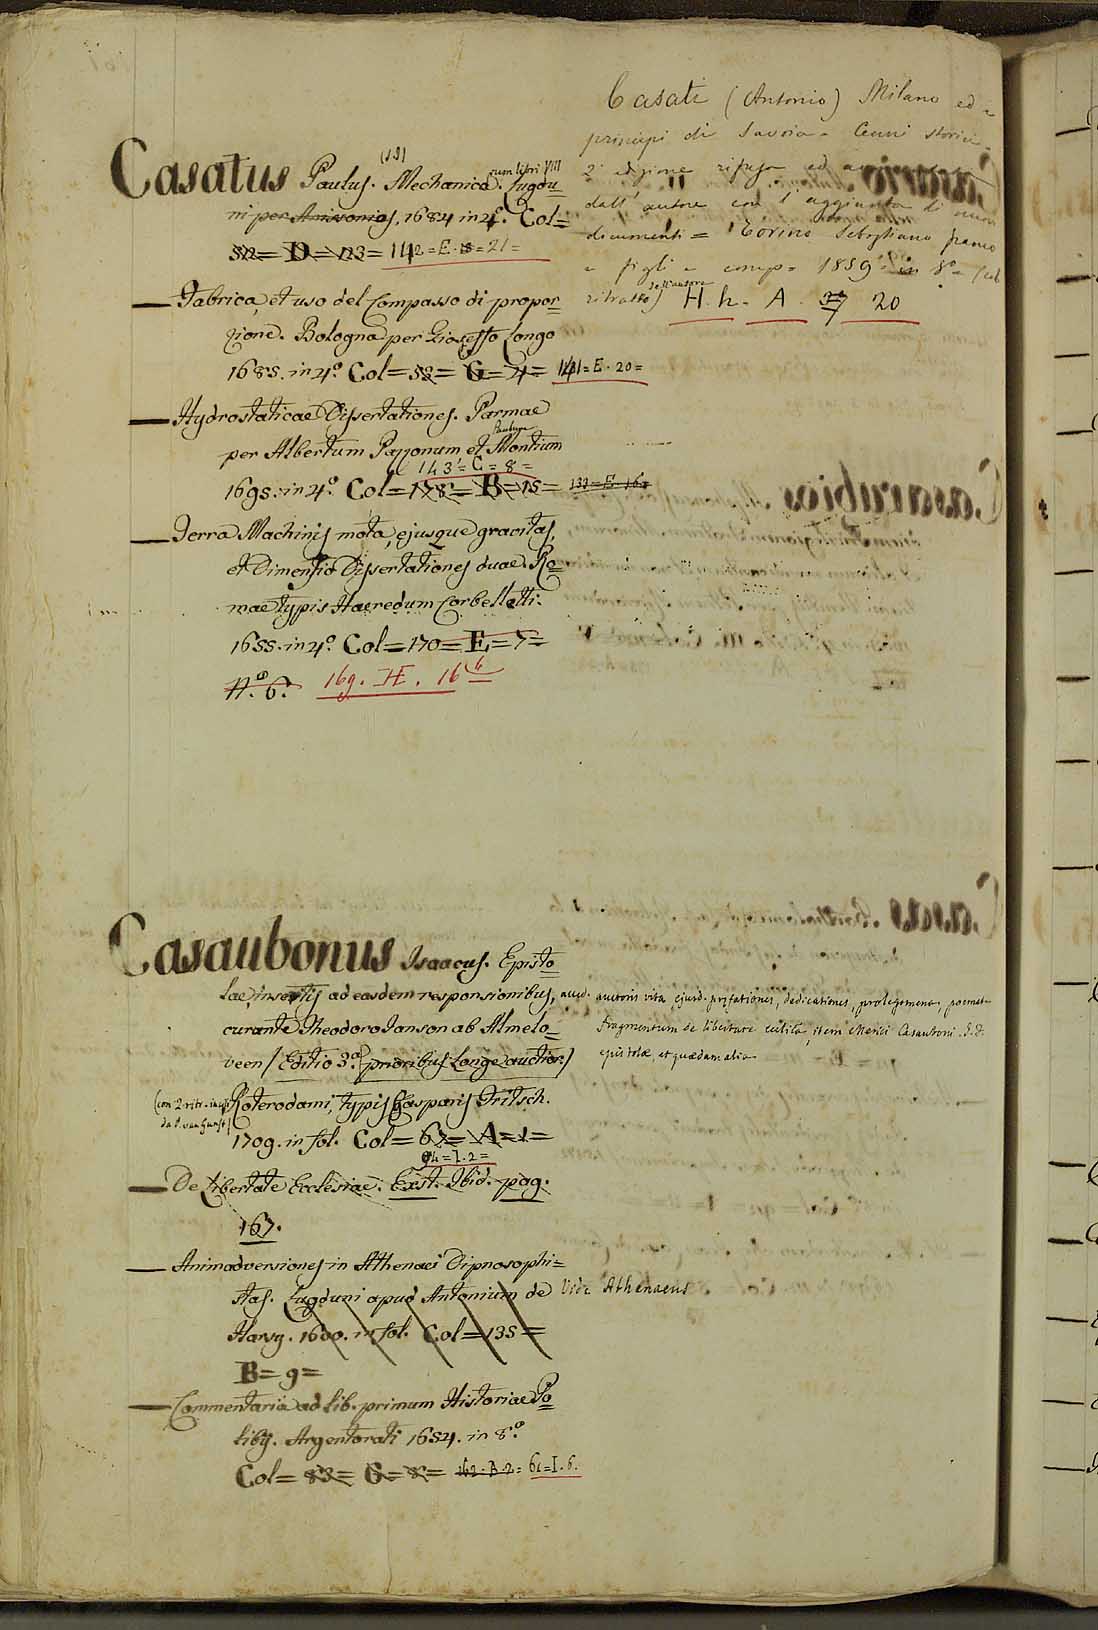 Casatus Paulus. (SJ) Mechanica. cum libri VIII Lugdu=
ni per Anissonios, 1684 in 4º. Col=
512= D= 123= 142= E. 18= 21=
— Fabrica, et uso del Compasso di propor=
zione. Bologna per Gioseffo Longo
1685. in 4º. Col= 58= G= 4= 141= E. 20=
— Hydrostaticae Dissertationes. Parmae
per Albertum Pazzonum et Paulum Montium
143= C= 8=
1695. in 4º. Col= 178= B= 15= 133= E. 16=
— Terra Machinis mota, ejusque gravitas,
et Dimensio Dissertationes duae. Ro=
mae typis Haeredum Corbelletti.
1655. in 4º. Col= 170= E= 7=
Nº. 6. 169. H. 16 6
Casati (Antonio) Milano ed i
principi di Savoia. Cenni storici.
2ª edizione rifusa ed
dall' autore con l' aggiunta di nuovi
documenti = Torino Sebastiano Franco
e figli e comp. 1859 in 8º (col
ritratto dell'autore) H. h. A. 20
Casaubonus Isaacus. Episto=
lae, insertis ad easdem responsionibus, accid. auctoris vita ejusd. præfationes, dedicationes, prolegomena, poemat.
curante Theodoro Janson ab Almelo= fragmentum de libertate eccles., item Merici Casauboni
veen (Editio 3ª. prioribus longe auctior) epistolæ, et quædam alia
(con 2 ritr. incisi da P. van Gunst) Roterodami, typis Casparis Fritsch.
1709. in fol. Col= 67= A= 1=
64= I. 2=
— De Libertate Ecclesiae. Exst. Ibid. pag.
167.
— Animadversiones in Athenaei Dipnosophi=
stas. Lugduni apud Antonium de Vide Athenaeus
Harsy. 1600. in fol. Col= 135=
B= 9=
— Commentaria ad Lib. primum Historiae Po=
libij. Argentorati 1654. in 8º
Col= 83= G= 8= 162. B. 2= 61= I. 6.